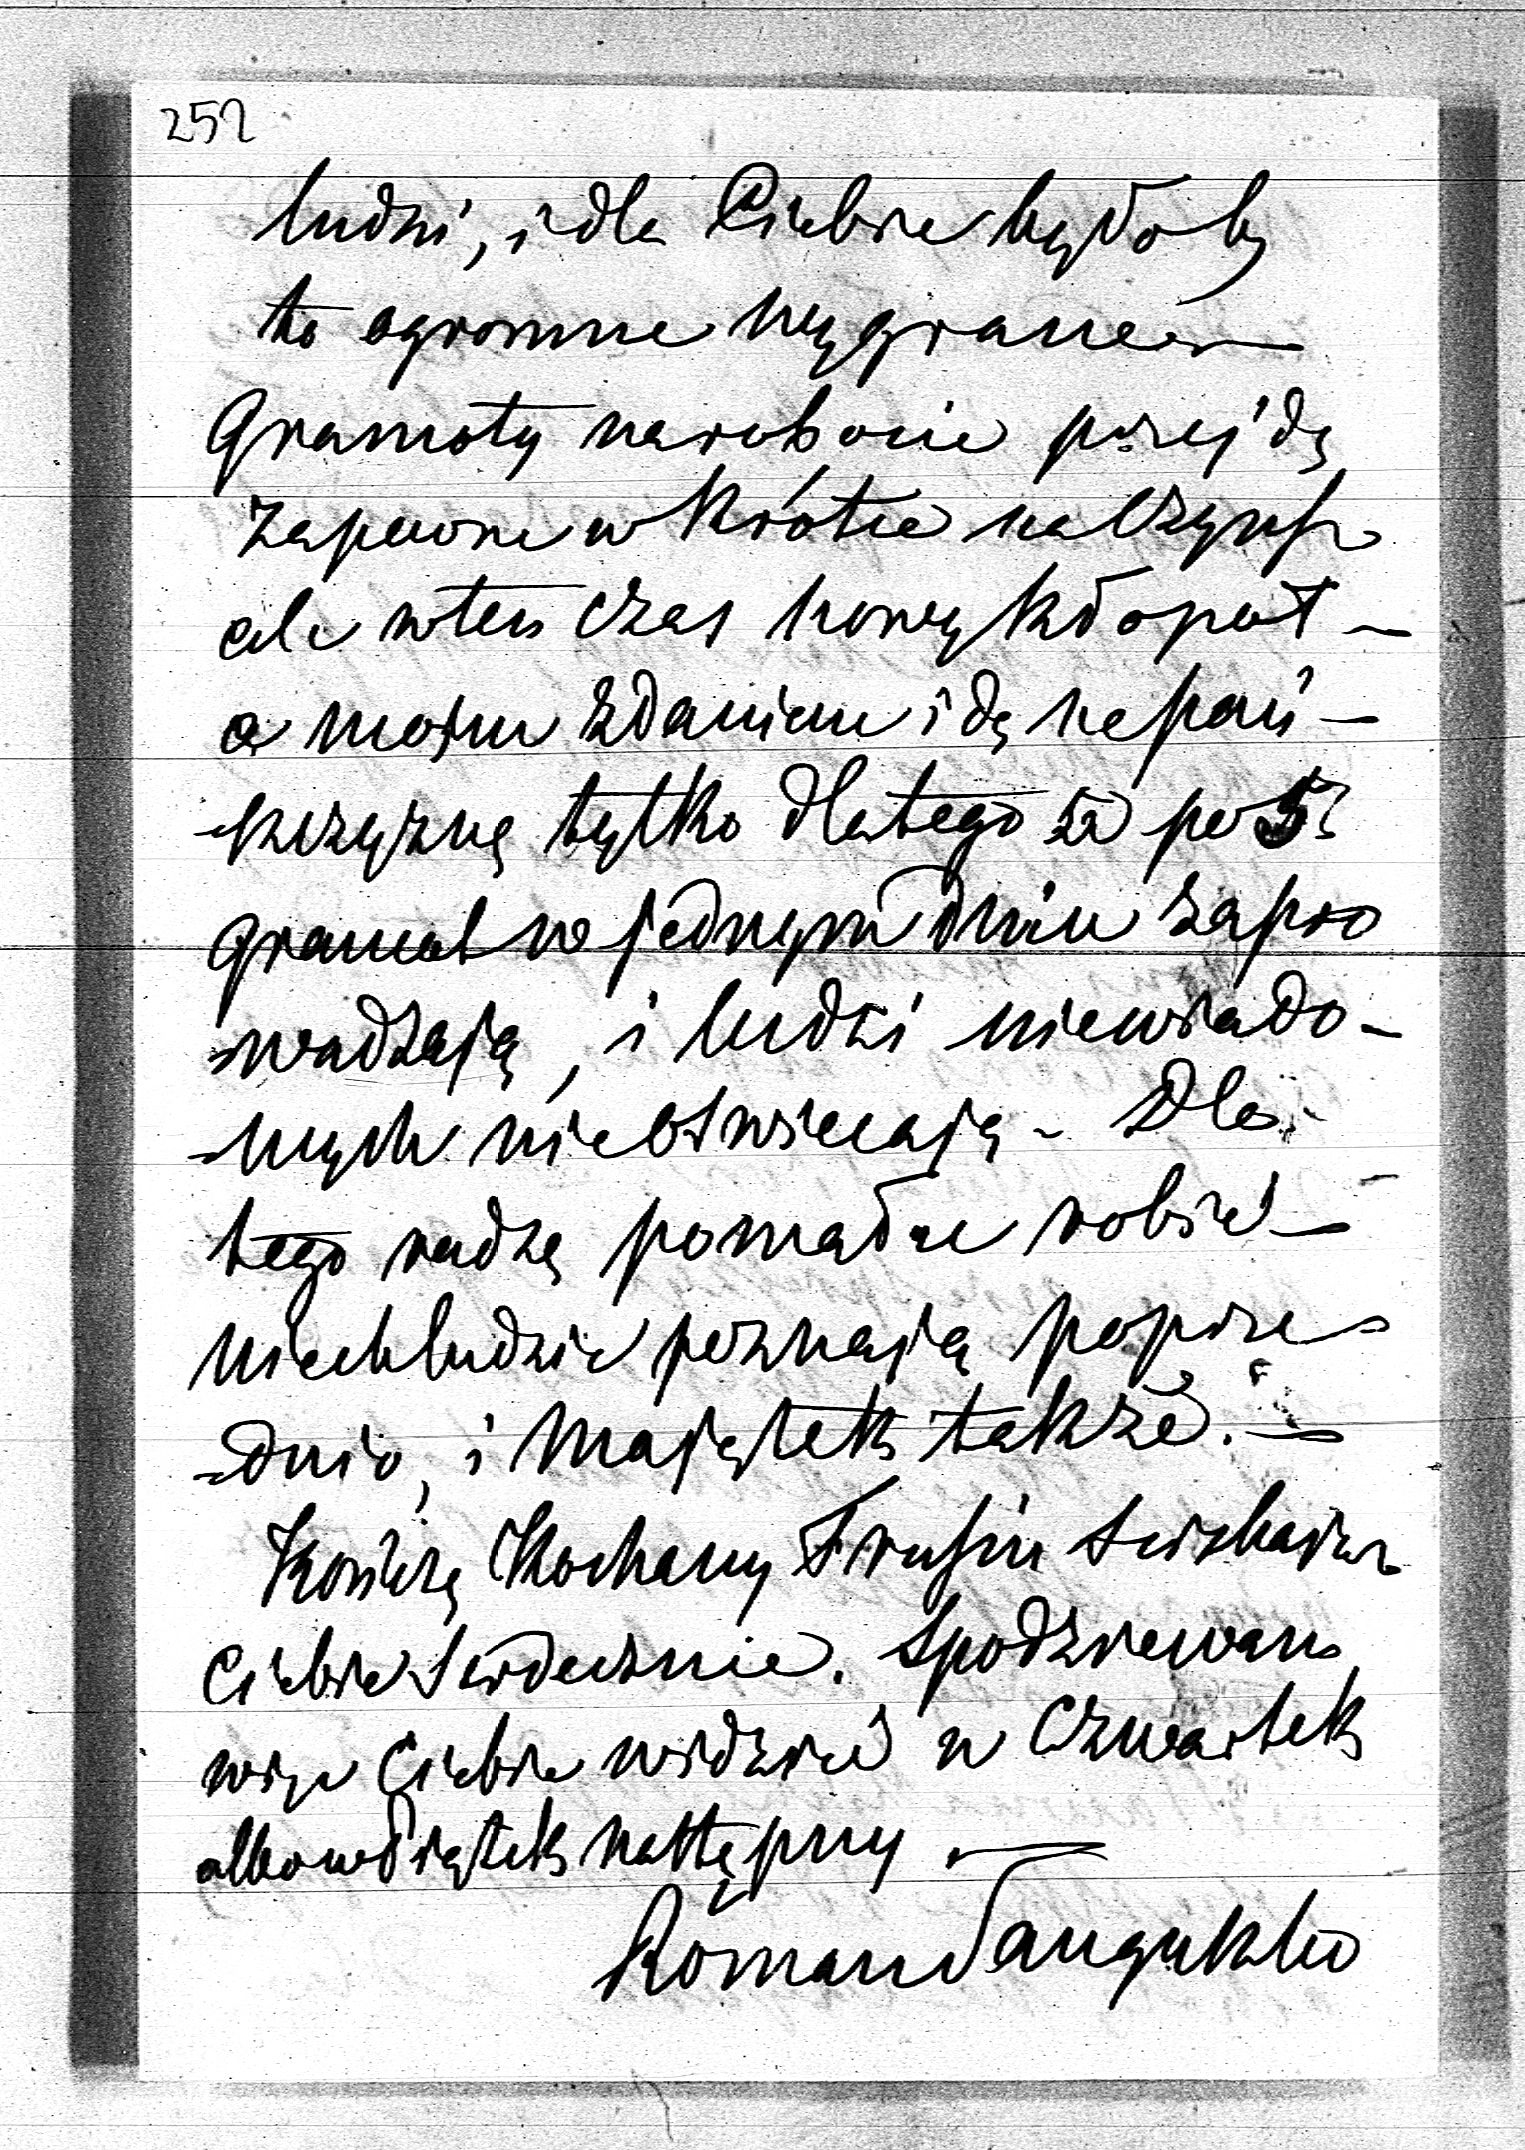 252
ludzi, i dla Ciebie byłoby
to ogromne wygrane —
Gramoty na robocie przejdą
zapewne w krótce na czynsz
ale wten czas nowy kłopot —
a mojm zdaniem idą na pań-
-szczyznę tylko dlatego że po 5
gramot w jednym dniu zapro
-wadzają, i ludzi niewiado-
-mych nieoświecają - Dla
tego radzę pomału robić —
niech ludzie poznają poprze-
-dnio, i Majątek także. —
Kończę Kochany ściskając
Ciebie Serdecznie. Spodziewam
więc Ciebie widzieć w Czwartek
albo w Piątek następny —
Roman Sanguszko